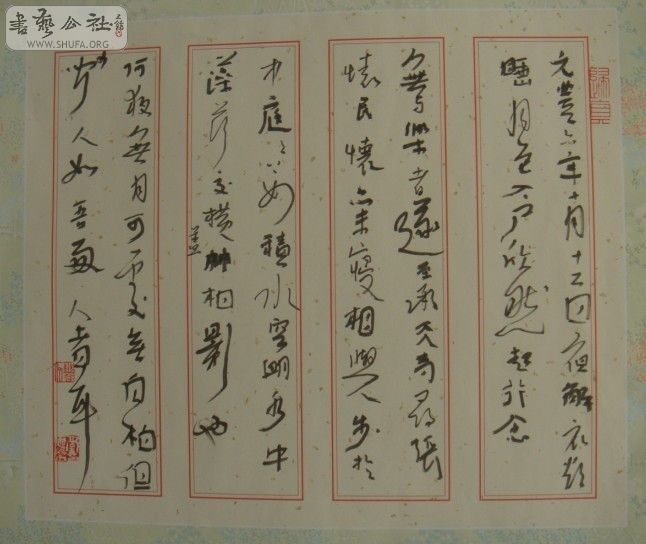 書藝公社
WWW.SHUFA.ORG
元豐六年十月十二日夜解衣欲
睡月色入戶欣然起行念
無與樂者遂至承天寺尋張
懷民懷亦未寢相與步於
中庭〻下如積水空明水中
藻荇交橫蓋竹柏影也
何夜無月何處無竹柏但
少人如吾兩人者耳